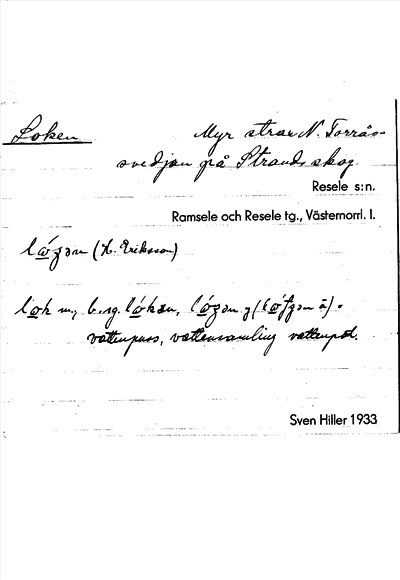 Loken
Myr strax N. Torrås-
svedjan på Strands skog.
Resele s:n.
Ramsele och Resele tg., Västernorrl. l.
(K. Eriksson)
lok m., b.sg.
vattenpuss, vattensamling vattenpöl.
Sven Hiller 1933